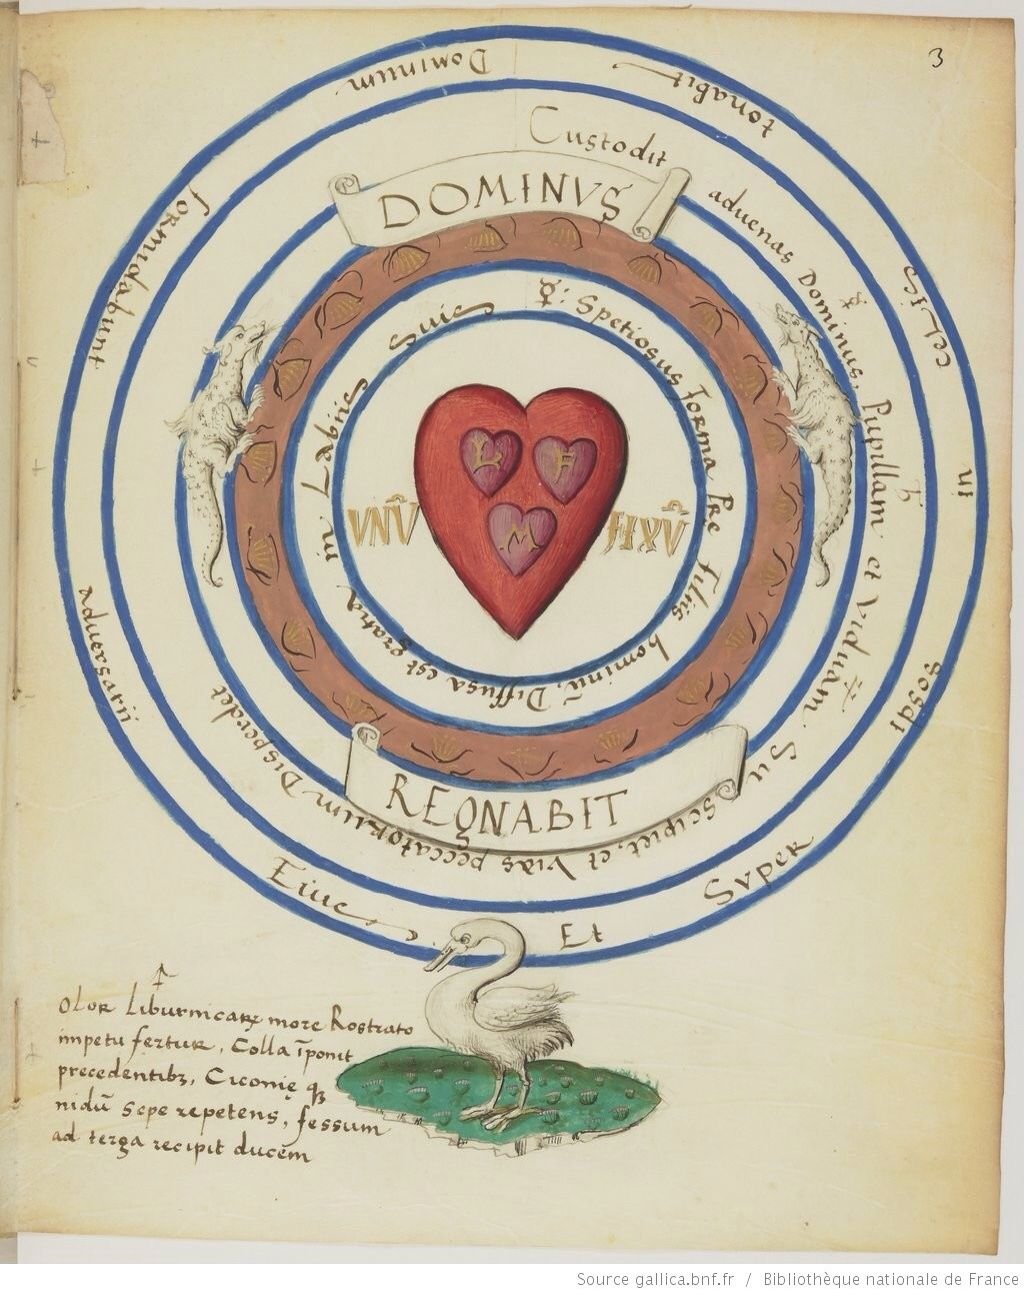 3
Dominum formidabunt adversarii Eius Et Super ipsos in celis tonabit
Custodit advenas Dominus, Pupillam et Viduam Suscipiet, et Vias peccatorum Disperdet
DOMINVS
☿: Spetiosus forma Pre filiis hominū, Diffusa est gratia in Labiis Suis
L F
M
VNV̄ FIXV̄
REGNABIT
OLOR Liburnicarꝝ more Rostrato
impetu fertur, Colla īponit
precedentibꝫ, Ciconię qꝫ
nidū sepe repetens, fessum
ad terga recipit ducem
Source gallica.bnf.fr / Bibliothèque nationale de France